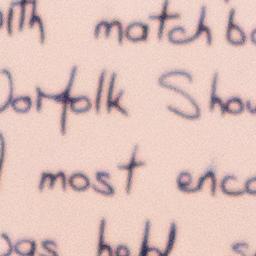 with matchbo
Norfolk Show
most enco
was held s